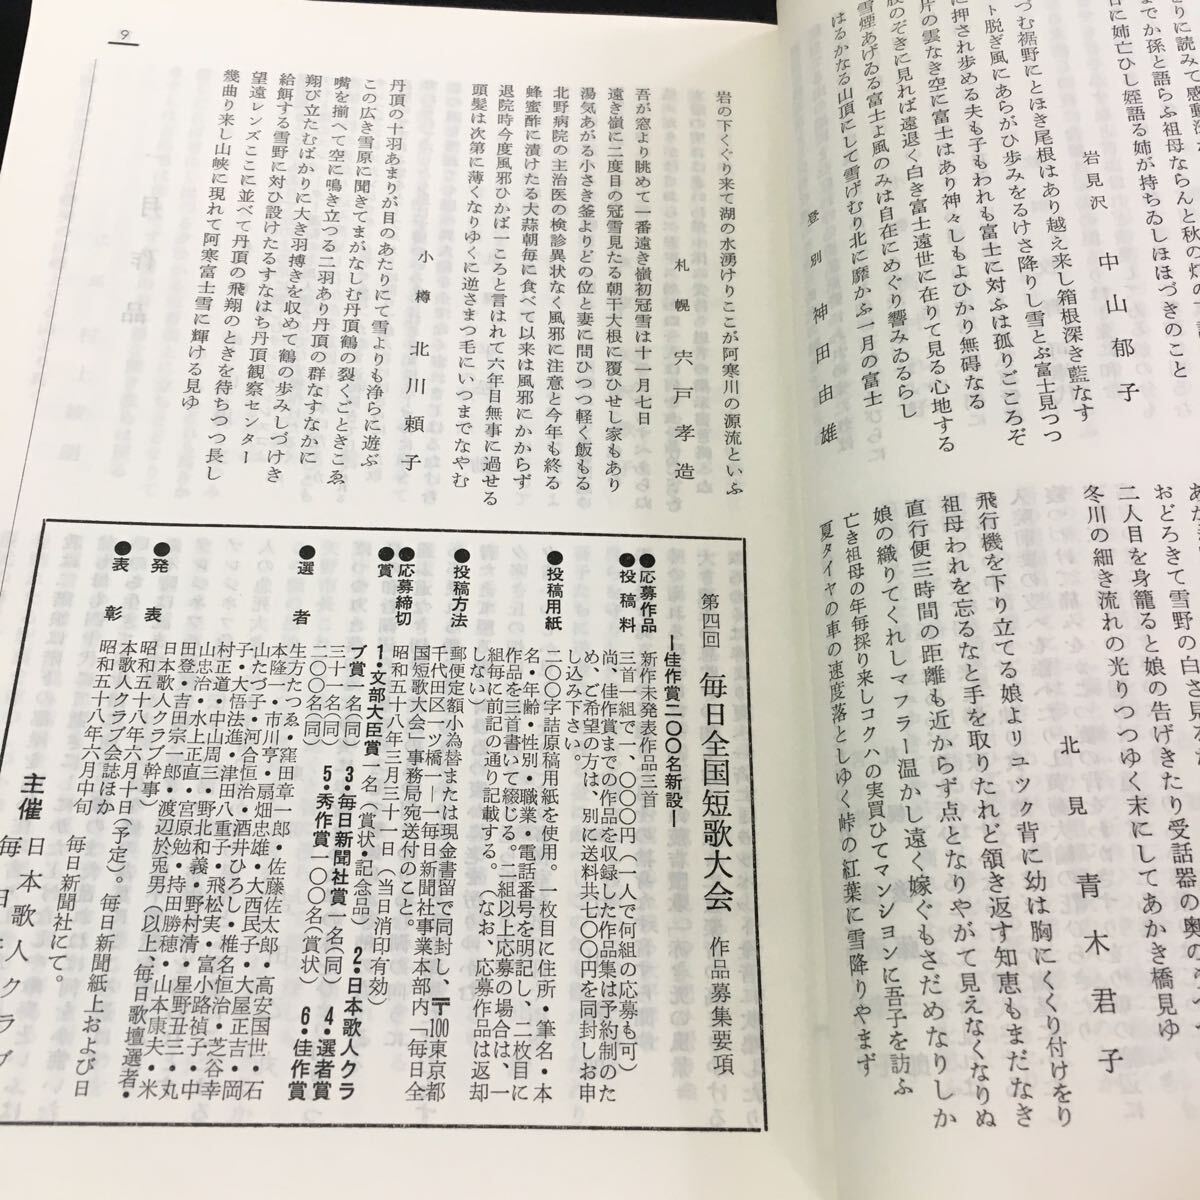 までか孫と語らふ祖母ならんと秋の灯の
日に姉亡ひし姪語る姉が持ちゐしほほづきのこと
岩見沢 中山郁子
づむ裾野にとほき尾根はあり越え来し箱根深き藍なす
ト脱ぎ風にあらがひ歩みをるけさ降りし雪とぶ富士見つつ
に押され歩める夫も子もわれも富士に対ふは孤りごころぞ
片の雲なき空に富士はあり神々しもよひかり無碍なる
のぞきに見れば遠退く白き富士遠世に在りて見る心地する
雪煙あげゐる富士よ風のみは自在にめぐり響みゐるらし
はるかなる山頂にして雪げむり北に靡かふ一月の富士
登別 神田由雄
おどろきて雪野の白さ見る
二人目を身籠ると娘の告げきたり受話器の奥の
冬川の細き流れの光りつつゆく末にしてあかき橋見ゆ
北見 青木君子
飛行機を下り立てる娘よリュック背に幼は胸にくくり付けをり
祖母われを忘るなと手を取りたれど頷き返す知恵もまだなき
直行便三時間の距離も近からず点となりやがて見えなくなりぬ
娘の織りてくれしマフラー温かし遠く嫁ぐもさだめなりしか
亡き祖母の年毎採り来しコクハの実買ひてマンションに吾子を訪ふ
夏タイヤの車の速度落としゆく峠の紅葉に雪降りやまず
9
岩の下くぐり来て湖の水湧けりここが阿寒川の源流といふ
札幌 宍戸孝造
吾が窓より眺めて一番遠き嶺初冠雪は十一月七日
遠き嶺に二度目の冠雪見たる朝干大根に覆ひせし家もあり
湯気あがる小さき釜よりどの位と妻に問ひつつ軽く飯もる
北野病院の主治医の検診異状なく風邪に注意と今年も終る
蜂蜜酢に漬けたる大蒜朝毎に食べて以来は風邪にかからず
退院時今度風邪ひかば一ころと言はれて六年目無事に過せる
頭髪は次第に薄くなりゆくに逆さまつ毛にいつまでなやむ
小樽 北川頼子
丹頂の十羽あまりが目のあたりにて雪よりも浄らに遊ぶ
この広き雪原に聞きてまがなしむ丹頂鶴の裂くごときこゑ
嘴を揃へて空に鳴き立つる二羽あり丹頂の群なすなかに
翔び立たむばかりに大き羽搏きを収めて鶴の歩みしづけき
給餌する雪野に対ひ設けたるすなはち丹頂観察センター
望遠レンズここに並べて丹頂の飛翔のときを待ちつつ長し
幾曲り来し山峡に現れて阿寒富士雪に輝ける見ゆ
第四回 毎日全国短歌大会 作品募集要項
―佳作賞二〇〇名新設―
●応募作品 新作未発表作品三首
●投稿料 三首一組で一、〇〇〇円(一人で何組の応募も可)
尚、佳作賞までの作品を収録した作品集は予約制のた
め、ご希望の方は、別に送料共七〇〇円を同封しお申
し込み下さい。
●投稿用紙 二〇〇字詰原稿用紙を使用。一枚目に住所・筆名・本
名・年齢・性別・職業・電話番号を明記し、二枚目に
作品を三首書いて綴じる。二組以上応募の場合は、一
組毎に前記の通り記載する。(なお、応募作品は返却
しない)
●投稿方法 郵便定額小為替または現金書留で同封し、〒100東京都
千代田区一ツ橋一―一毎日新聞社事業本部内「毎日全
国短歌大会」事務局宛送付のこと。
●応募締切 昭和五十八年三月三十一日(当日消印有効)
●賞 1・文部大臣賞一名(賞状・記念品) 2・日本歌人クラ
ブ賞一名(同) 3・毎日新聞社賞一名(同) 4・選者賞
三十一名(同) 5・秀作賞一〇〇名(賞状) 6・佳作賞
二〇〇名(同)
●選者 生方たつゑ・窪田章一郎・佐藤佐太郎・高安国世・石
本隆一・市川亨・扇畑忠雄・大西民子・大屋正吉・岡
山たづ子・河合恒治・酒井ひろし・椎名恒治・芝谷幸
子・大悟法進・津田八重子・飛松実・富小路禎子・中
村正爾・中山周三・野北和義・野村清・星野丑三・丸
山忠治・水上正直・宮原勉・持田勝穂・山本康夫・米
田登・吉田宗一郎・渡辺於兎男(以上、毎日歌壇選者・
日本歌人クラブ幹事)
●発表 昭和五十八年六月十日(予定)。毎日新聞紙上および日
本歌人クラブ会誌ほか
●表彰 昭和五十八年六月中旬 毎日新聞社にて。
主催 日本歌人クラブ
毎日